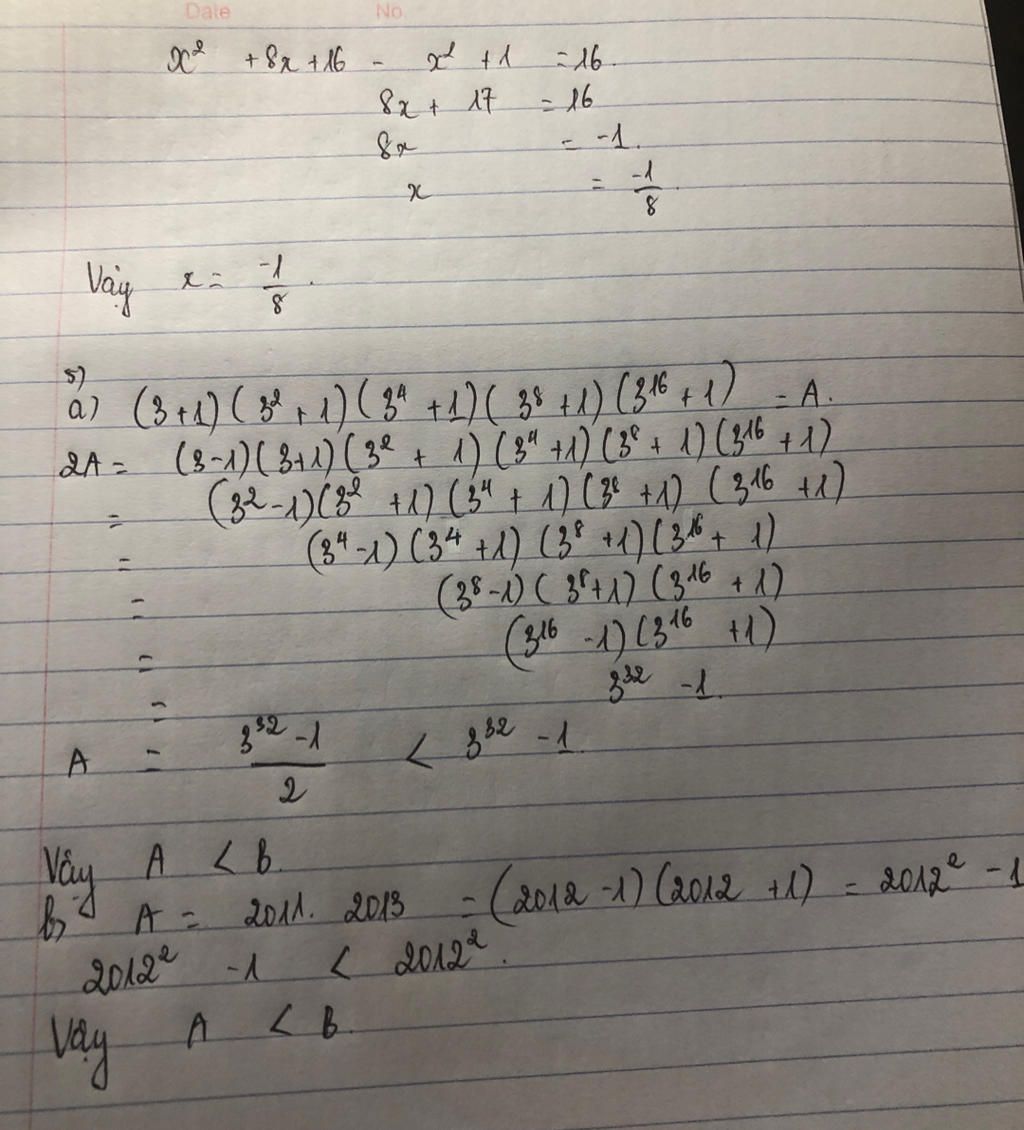 Date No
x² + 8x + 16 - x² + 1 = 16.
8x + 17 = 16
8x = -1.
x = -1/8.
Vậy x = -1/8.
5)
a) (3+1)(3²+1)(3⁴+1)(3⁸+1)(3¹⁶+1) = A.
2A = (3-1)(3+1)(3²+1)(3⁴+1)(3⁸+1)(3¹⁶+1)
= (3²-1)(3²+1)(3⁴+1)(3⁸+1)(3¹⁶+1)
= (3⁴-1)(3⁴+1)(3⁸+1)(3¹⁶+1)
= (3⁸-1)(3⁸+1)(3¹⁶+1)
= (3¹⁶-1)(3¹⁶+1)
= 3³²-1.
A = (3³²-1)/2 < 3³²-1.
Vậy A < B.
b) A = 2011.2013 = (2012-1)(2012+1) = 2012²-1
2012² -1 < 2012².
Vậy A < B.